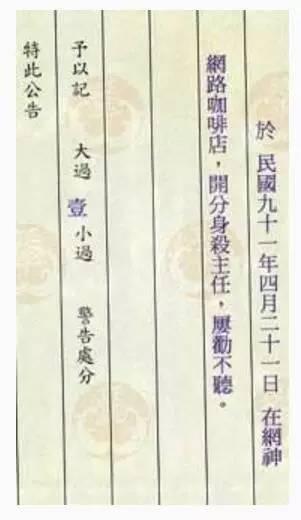 於 民國九十一年四月二十一日 在網神
網路咖啡店，開分身殺主任，屢勸不聽。
予以記 大過 壹 小過 警告處分
特此公告